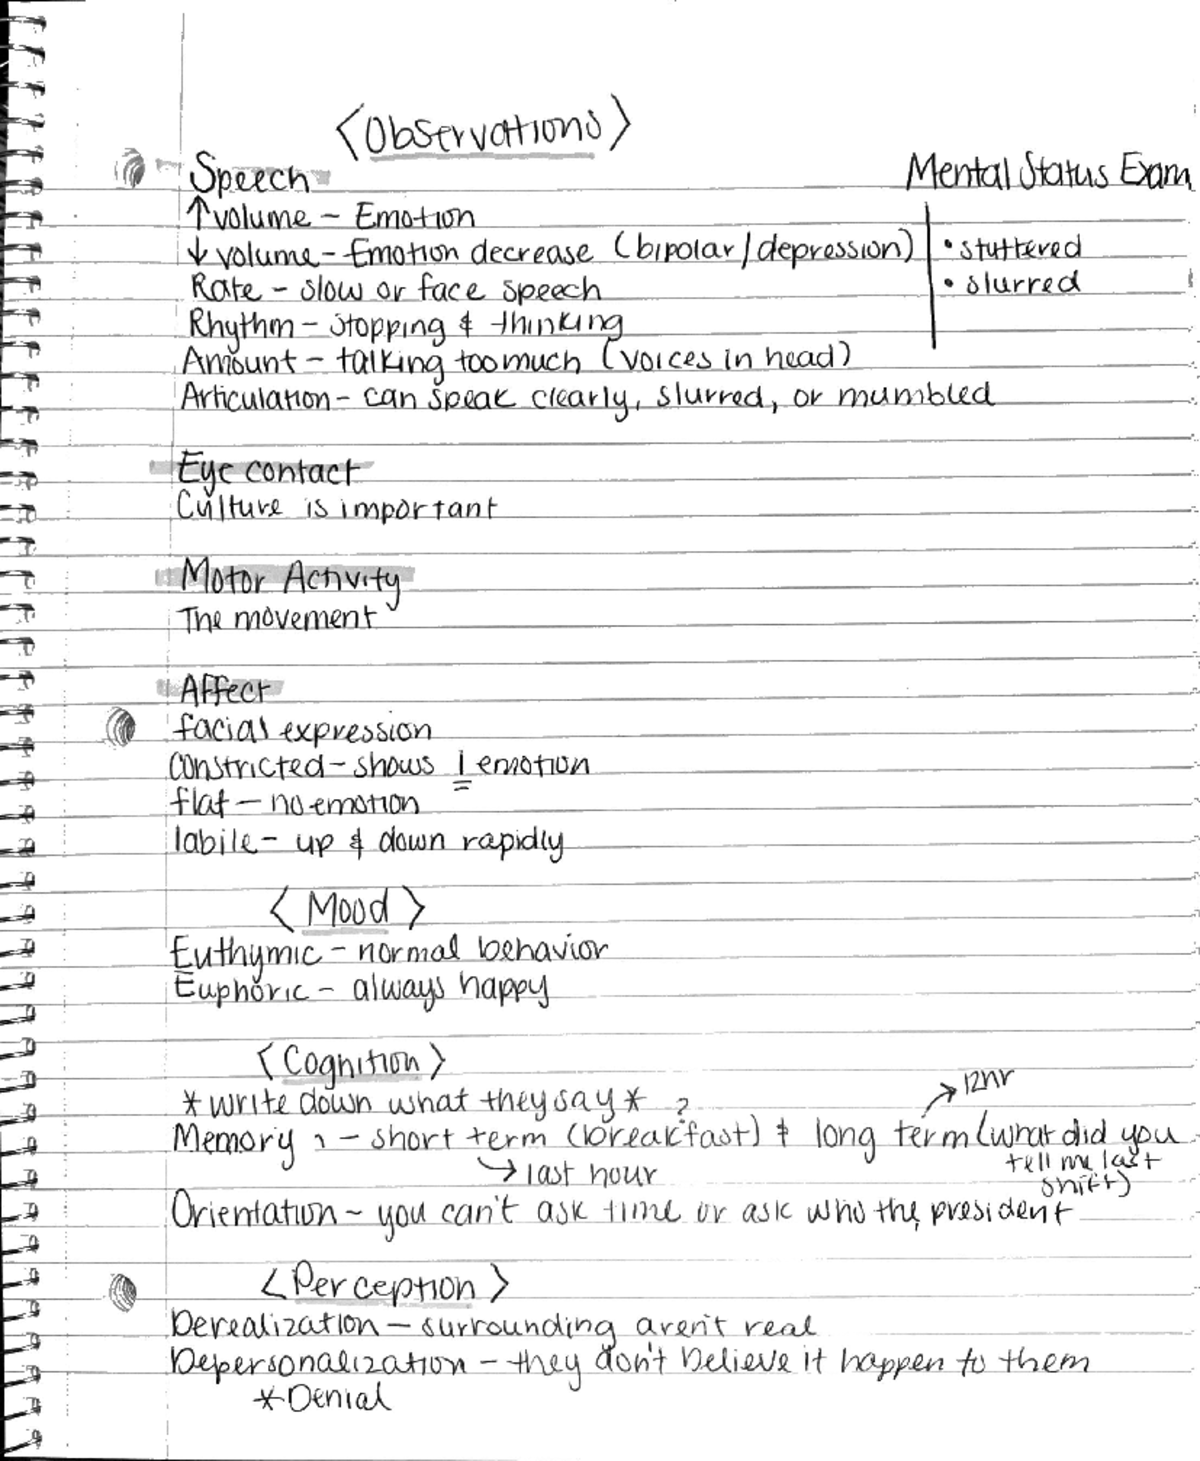 <Observations>
Mental Status Exam
Speech
↑volume - Emotion
↓ volume - Emotion decrease (bipolar/depression)
• stuttered
Rate - slow or face speech
• slurred
Rhythm - stopping & thinking
Amount - talking too much (voices in head)
Articulation - can speak clearly, slurred, or mumbled
Eye contact
Culture is important
Motor Activity
The movement
Affect
facial expression
constricted - shows 1 emotion
flat - no emotion
labile - up & down rapidly
<Mood>
Euthymic - normal behavior
Euphoric - always happy
<Cognition>
→ 12hr
*write down what they say*
?
Memory - short term (breakfast) & long term (what did you
tell me last
shift)
→ last hour
Orientation - you can't ask time or ask who the president
<Perception>
Derealization - surrounding aren't real
Depersonalization - they don't believe it happen to them
*Denial